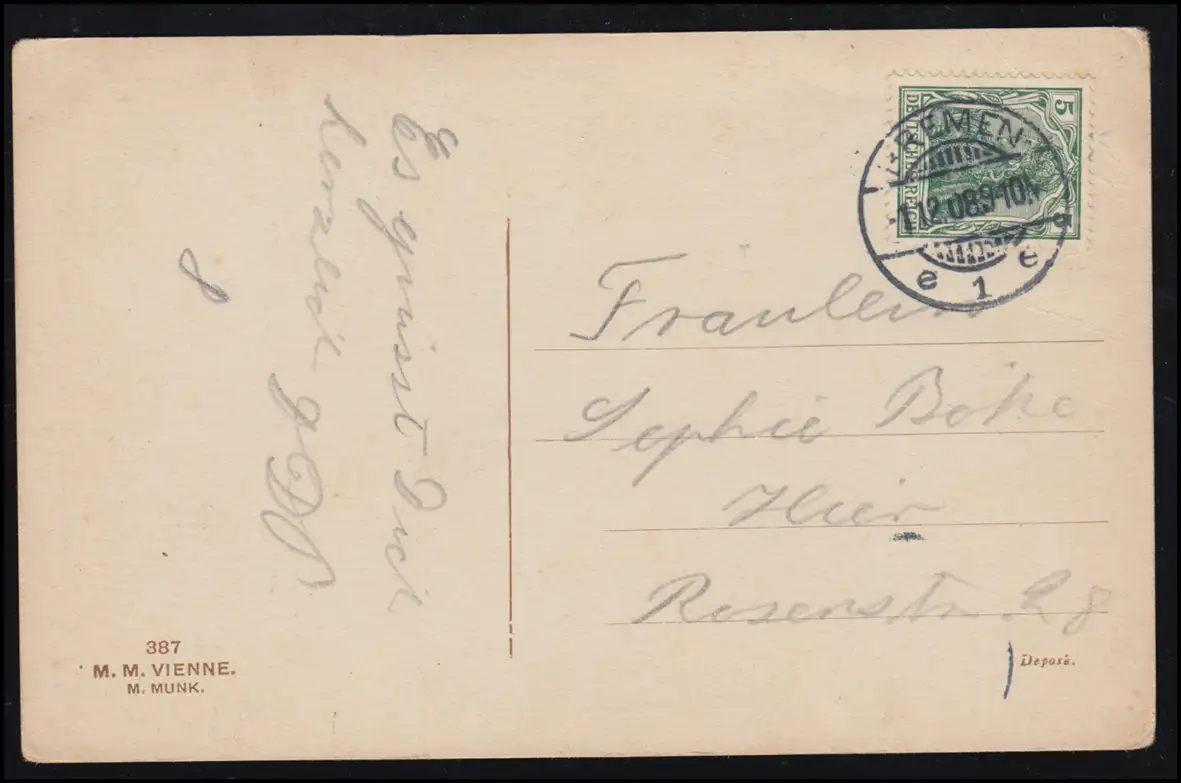 Es grüsst Dich
herzlich
5
DEUTSCHES REICH
BREMEN
-1.12.08.9-10N
e 1 e
Fräulein
Sophie
Hier
Rosenstr 28
387
M. M. VIENNE.
M. MUNK.
Deposé.